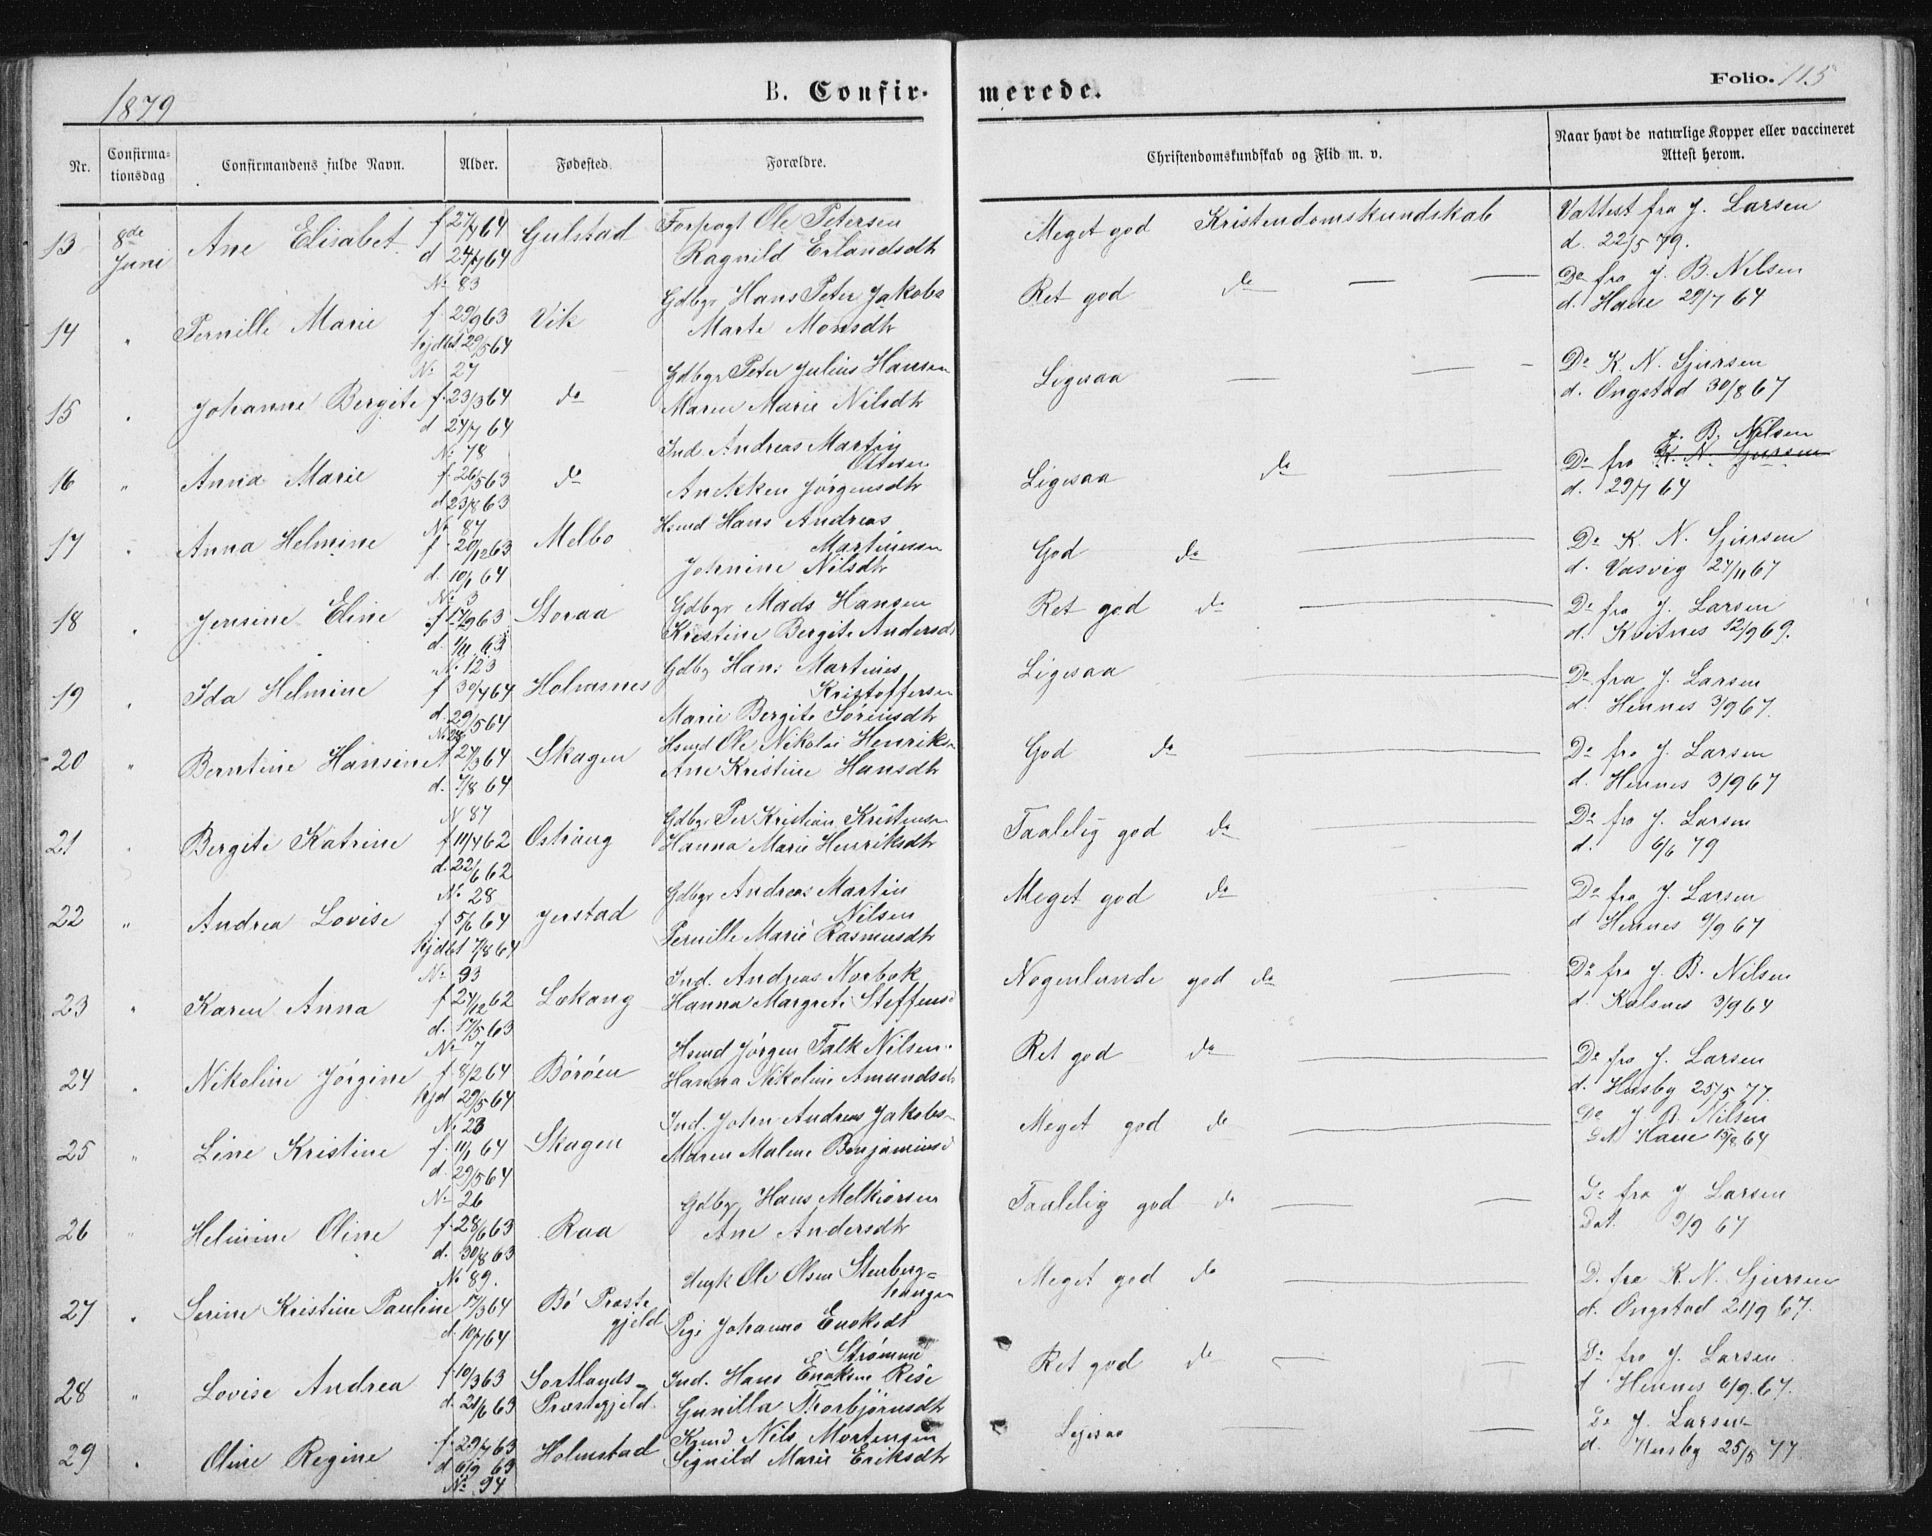 1879
B. Confir-
merede.
Folio. 115
Nr.
Confirma-
tionsdag
Confirmandens fulde Navn.
Alder.
Fødested.
Forældre.
Christendomskundskab og Flid m. v.
Naar havt de naturlige Kopper eller vaccineret
Attest herom.
13 8de Juni Ane Elisabet f 27/1 64 Gulstad Forpagt Ole Petersen Meget god Kristendomskundskab Vattest fra J. Larsen
d 24/7 64 Ragnild Erlandsdtr d. 22/5 79.
No 83
14 " Pernille Marie f. 29/9 63 Vik Gdbgr Hans Peter Jakobs Ret god do — — Do fra J. B. Nilsen
hjdbt 29/5 64 Marte Monsdtr d. Haue 29/7 64
No 27
15 " Johanne Bergite f. 23/3 64 do Gdbgr Peter Julius Hansen Ligesaa — — Do K. N. Sjursen
d 24/7 64 Maren Marie Nilsdtr d. Ongstad 30/8 67
No 78
16 " Anna Marie f. 26/5 63 do Ind Andreas Martin Ligesaa do — J. B. Nilsen
Do fra K. N. Sjursen
d 23/8 63 Anekken Jørgensdtr d. 29/7 64
No 87
17 " Anna Helmine f 20/12 63 Melbo Hsmd Hans Andreas God do — Do K. N. Sjursen
Martinussen
d. 10/1 64 Johnine Nilsdtr d. Vasvig 27/11 67
No 3
18 " Jensine Eline f 17/9 63 Storaa Gdbgr Mads Hansen Ret god do — Do fra J. Larsen
d. 1/11 63 Kristine Bergite Andersd d. Kvitnes 12/9 69.
No 123
19 " Ida Helmine f 30/4 64 Holmsnes Gdbg Hans Martinus Ligesaa — Do fra J. Larsen
Kristoffersen
d. 29/5 64 Marie Bergite Sørensdtr d. Hennes 3/9 67.
No 28
20 " Berntine Hansine f 27/3 64 Skagen Hsmd Ole Nikolai Henriks God do — Do fra J. Larsen
d. 7/8 64 Ane Kristine Hansdtr d. Hennes 3/9 67
N 87
21 " Bergite Katrine f 11/4 62 Østrang Gdbgr Per Kristian Kristensen Taalelig god do — Do fra J. Larsen
d. 22/6 62 Hanna Marie Henriksdtr d. 6/6 79
No 28
22 " Andrea Lovise f 5/6 64 Jerstad Gdbgr Andreas Martin Meget god do — Do fra J. Larsen
Nilsen
hjdbt 7/8 64 Pernille Marie Rasmusdtr d Hennes 9/9 67
No 93
23 " Karen Anna f 27/12 62 Lekang Ind. Andreas Norbok Nogenlunde god do — Do fra J. B. Nilsen
d. 17/5 63 Hanna Margrete Steffensd d. Kalsnes 3/9 64
No 7
24 " Nikoline Jørgine f 8/2 64 Børøen Hsmd Jørgen Falk Nilsen Ret god do — Do fra J. Larsen
hjd 29/5 64 Hanna Nikoline Amundsd d. Husby 25/5 77.
No 23
25 " Line Kristine f. 11/1 64 Skagen Ind. John Andreas Jakobs Meget god do — Do J. B. Nilsen
d. 29/5 64 Maren Malene Benjaminsd Dat Haue 15/8 64
No 26
26 " Helmine Oline f. 28/6 63 Raa Gdbgr Hans Melkiorsen Taalelig god do — — Do fra J Larsen
d. 30/8 63 Ane Andersdtr Dat. 9/9 67
No 89.
27 " Serine Kristine Pauline 17/3 64 Bø Præste- Ungk Ole Olsen Stenberg= Meget god do — D. fra K. N. Sjursen
gjeld haugen
d. 10/7 64 Pige Johanna Enoksdt d. Ongstad 21/9 67.
Strømme
28 " Lovise Andrea f 10/3 63 Sortlands- Ind. Hans Enoksen Rise Ret god do — — Do fra J. Larsen
d. 21/6 63 Præstegjeld. Gunilla Thorbjørnsdtr d Hennes 6/9 67.
29 " Oline Regine f. 29/7 63 Holmstad Nils Mortensen Ligesaa — — Do J. Larsen
d 6/9 63 Signild Marie Eriksdtr d. Husby 25/5 77.
No 94